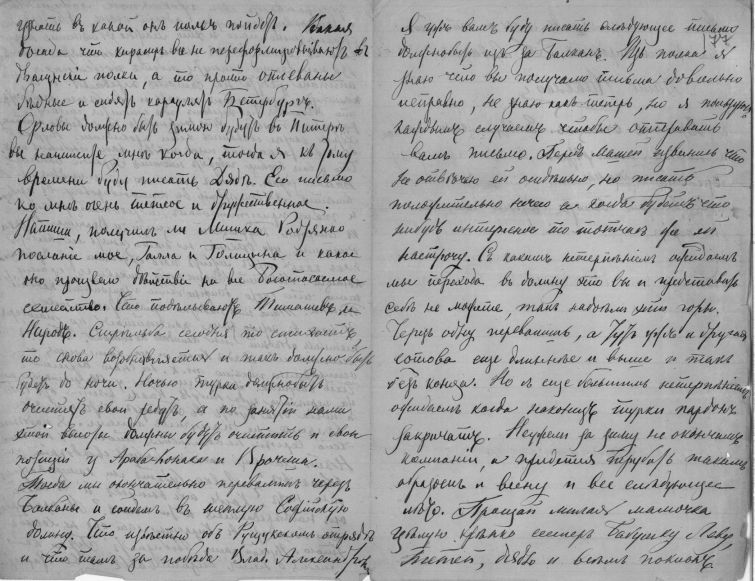 гулять въ какой онъ полкъ пойдетъ. Какая
досада что кирасиръ вы не переформировываютъ въ
драгунскіе полки, а то просто
бѣдные и сидятъ караулятъ Петербургъ.
Орловы должно быть зимою будутъ въ Питерѣ
вы напишите мнѣ когда, тогда я къ тому
времени буду писать дядѣ. Его письмо
ко мнѣ очень теплое и дружественное.
Напиши, получилъ ли Мишка Родзянко
посланіе мое, Галла и Голицына и какое
оно произвело дѣйствіе на все богоспасаемое
семейство. Что подѣлываютъ Тимашевъ и
Стрѣльба сегодня то стихаетъ
то снова возобновляется и такъ должно быть
будетъ до ночи. Ночью турки должно быть
очистятъ свой редутъ, а по занятіи нами
этой высоты должны будутъ очистить и свои
позиціи у Арабъ-Конака и Врачеша.
Тогда мы окончательно перевалимъ черезъ
Балканы и сойдемъ въ теплую Софійскую
долину. Что извѣстно объ Рущукскомъ отрядѣ
и что тамъ за побѣда Влад. Александров.
Я ужъ вамъ буду писать слѣдующее письмо
должно быть изъ за Балканъ. Изъ полка я
знаю что вы получали письма довольно
неправно, не знаю какъ теперь, но я пользуюсь
каждымъ случаемъ чтобы отправить
вамъ письмо. Передъ Машей извинись что
не отвѣчаю ей отдѣльно, но писать
положительно нечего а когда будетъ что
нибудь интересное то тотчасъ же ей
настрочу. Съ какимъ нетерпѣніемъ ожидаемъ
мы перехода въ долину это вы и представить
себѣ не можете, такъ надоѣли эти горы.
Черезъ одну перевалишь, а тутъ ужъ и другая
готова еще длиннѣе и выше и такъ
безъ конца. Но съ еще большимъ нетерпѣніемъ
ожидаемъ когда наконецъ турки пардонъ
закричатъ. Неужели за зиму не окончимъ
кампаніи, а придется такимъ
образомъ и весну и все слѣдующее
лѣто. Прощай милая мамочка
цѣлую крѣпко сестеръ бабушку Леву,
Петей, дядю и всѣмъ поклонъ